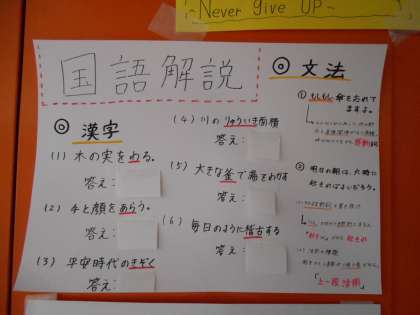 ~Never Give UP~
国語解説
◎漢字
(1) 木の実をわる。
答え:
(2) 手と顔をあらう。
答え:
(3) 平安時代のきぞく
答え:
(4) 川のりゅういき面積
答え:
(5) 大きな釜で湯をわかす
答え:
(6) 毎日のように稽古する
答え:
◎文法
① もしもし、傘を忘れて
ますよ。
感動詞
② 明日の朝は、六時に
起きればよいだろう。
「上一段活用」